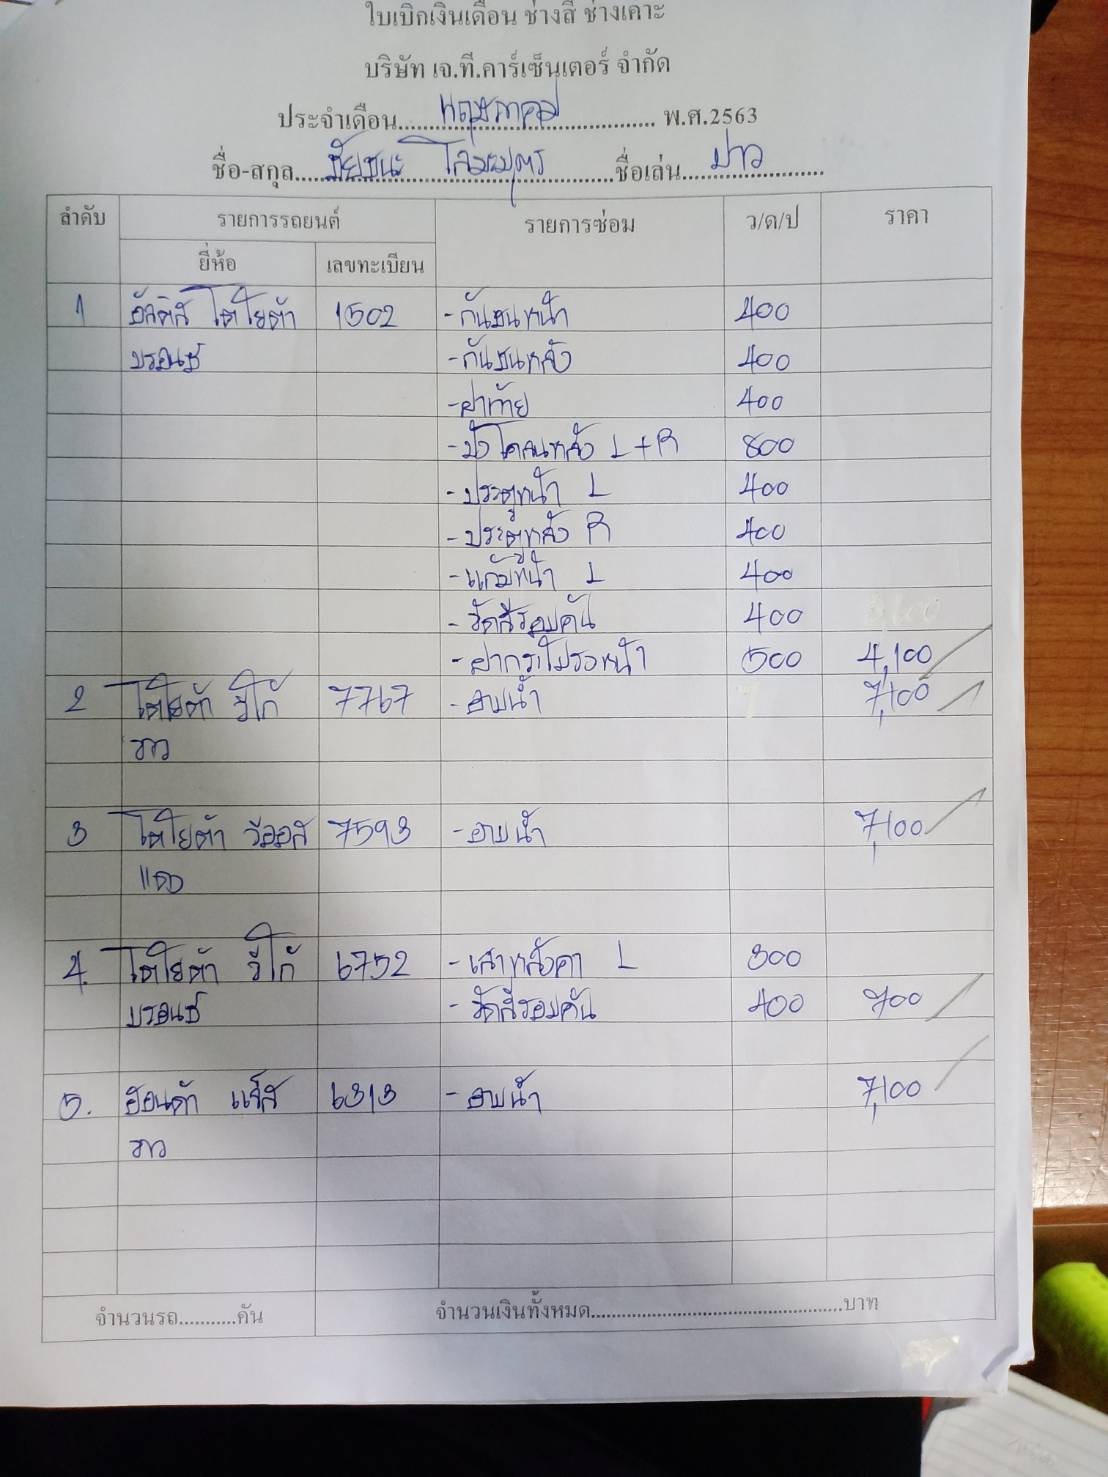 ใบเบิกเงินเดือน ช่างสี ช่างเคาะ
บริษัท เจ.ที.คาร์เซ็นเตอร์ จำกัด
ประจำเดือน....พฤษภาคม.... พ.ศ.2563
ชื่อ-สกุล....ชัยชนะ....ชื่อเล่น....ปาว....
ลำดับ รายการรถยนต์ รายการซ่อม ว/ด/ป ราคา
ยี่ห้อ เลขทะเบียน
1 อัลติส โตโยต้า 1502 -กันชนหน้า 400
บรอนซ์ -กันชนหลัง 400
-ฝาท้าย 400
-บังโคลนหลัง L+R 800
-ประตูหน้า L 400
-ประตูหลัง R 400
-แก้มหน้า L 400
-ขัดสีรอบคัน 400
-ฝากระโปรงหน้า 500 4,100
2 โตโยต้า วีโก้ 7767 -อาบน้ำ 7,100
ขาว
3 โตโยต้า วีออส 7593 -อาบน้ำ 7,100
แดง
4. โตโยต้า วีโก้ 6752 -เสาหลังคา L 300
บรอนซ์ -ขัดสีรอบคัน 400 700
5. ฮอนด้า แจ๊ส 6313 -อาบน้ำ 7,100
ขาว
จำนวนรถ...........คัน จำนวนเงินทั้งหมด....................................................บาท